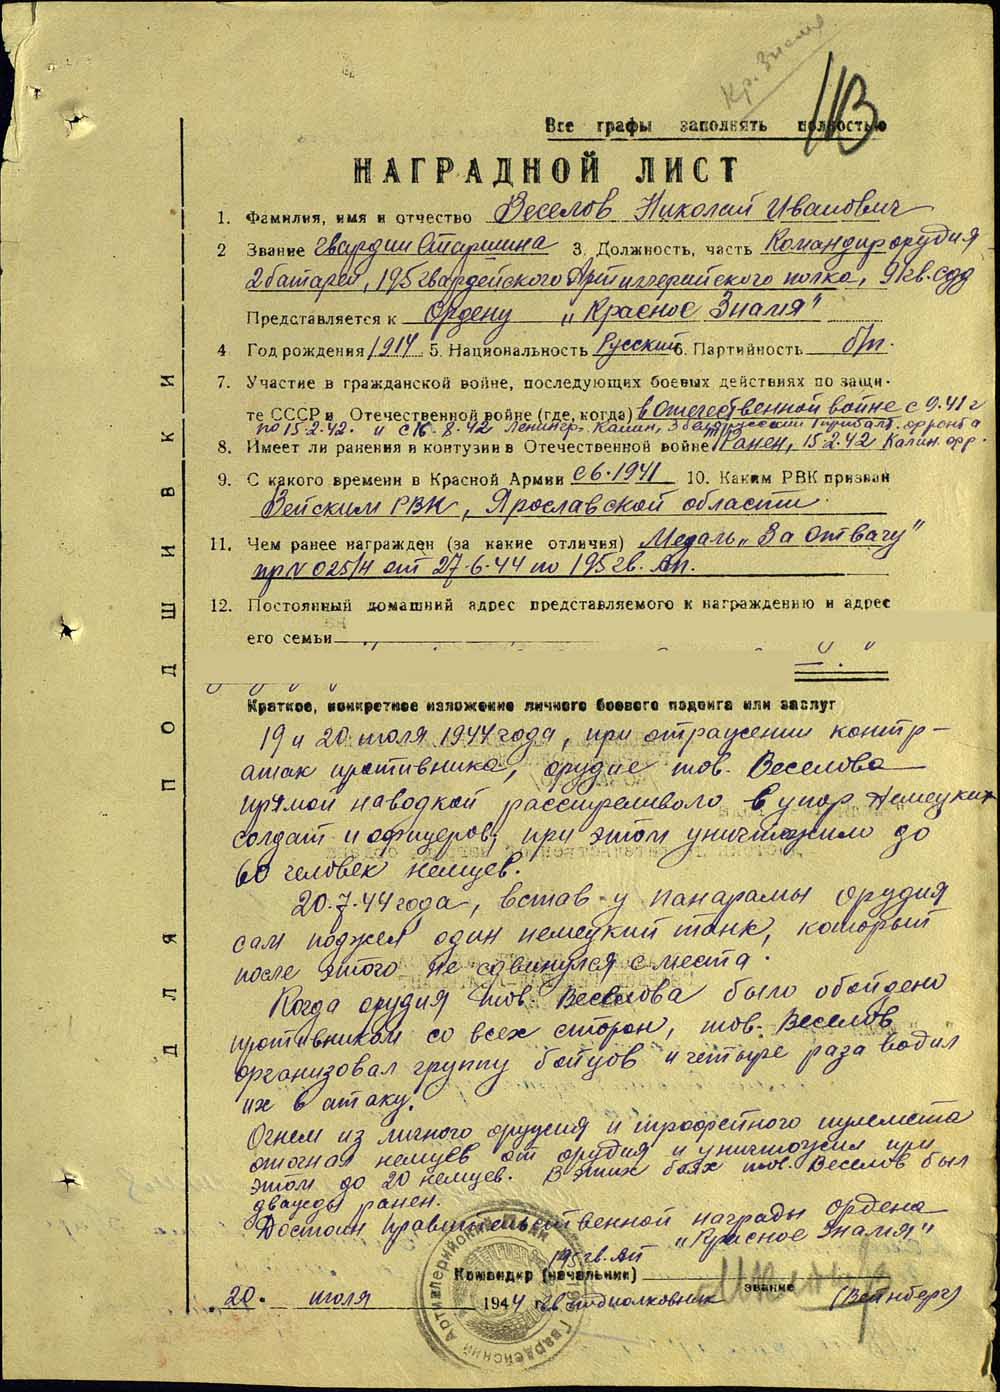 Кр. Знамя
113
Все графы заполнять полностью
НАГРАДНОЙ ЛИСТ
1. Фамилия, имя и отчество Веселов Николай Иванович
2 Звание гвардии Старшина 3. Должность, часть Командир орудия
2 батареи, 195 гвардейского Артиллерийского полка, 91 гв. сдд
Представляется к Ордену „Красное Знамя"
4 Год рождения 1914 5. Национальность Русский 6. Партийность б/п.
7. Участие в гражданской войне, последующих боевых действиях по защи-
те СССР и Отечественной войне (где, когда) в Отечественной войне с 9.41 г
по 15.2.42. и с 16.8.42 Ленингр. Калин, 3 Белорусский Прибалт. фронта
8. Имеет ли ранения и контузии в Отечественной войне Ранен, 15.2.42 Калин. фр.
9. С какого времени в Красной Армии с 6.1941 10. Каким РВК призван
Вейским РВК, Ярославской области
11. Чем ранее награжден (за какие отличия) Медаль „За Отвагу"
пр N 025/н от 27.6.44 по 195 гв. Ап.
12. Постоянный домашний адрес представляемого к награждению и адрес
его семьи
Краткое, конкретное изложение личного боевого подвига или заслуг
19 и 20 июля 1944 года, при отражении контр-
атак противника, орудие тов. Веселова
прямой наводкой расстреливало в упор немецких
солдат и офицеров, при этом уничтожило до
60 человек немцев.
20.7.44 года, встав у панарамы орудия
сам поджег один немецкий танк, который
после этого не сдвинулся с места.
Когда орудия тов. Веселова было обойдено
противником со всех сторон, тов. Веселов
организовал группу бойцов и четыре раза водил
их в атаку.
Огнем из личного оружия и трофейного пулемета
отогнал немцев от орудия и уничтожил при
этом до 20 немцев. В этих боях тов. Веселов был
дважды ранен.
Достоин правительственной награды ордена
„Красное Знамя"
195 гв. АП
Командир (начальник)
звание
20. июля 1944 г. гв. подполковник (Вейнберг)
ДЛЯ ПОДШИВКИ